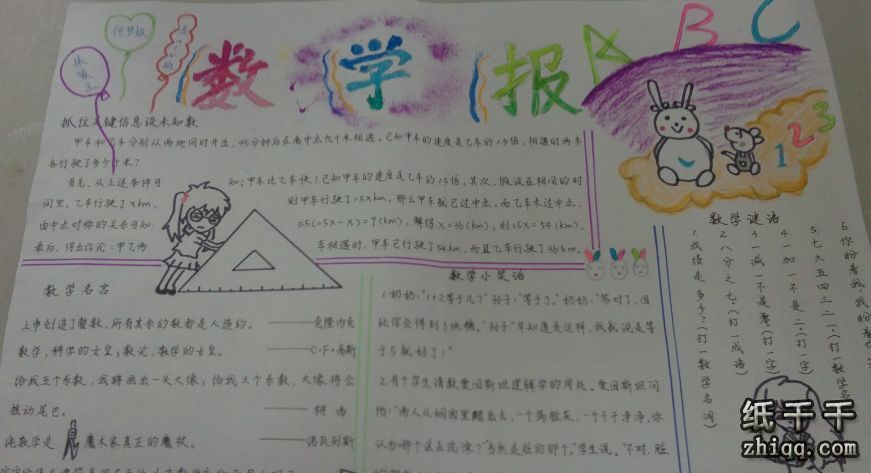 数学报
A B C
1 2 3
抓住关键信息设未知数
甲车和乙车分别从两地同时开出,45分钟后在离中点九千米相遇。已知甲车的速度是乙车的1.5倍,相遇时两车
各行驶了多少千米?
首先,从上述条件可知:甲车比乙车快!已知甲车的速度是乙车的1.5倍;其次,假设在相同的时
间里,乙车行驶了xkm,则甲车行驶了1.5xkm,那么甲车就已过中点,而乙车未过中点,
由中点对称的关系可知,0.5(1.5x-x)=9(km),解得x=36(km);则1.5x=54(km),
最后,得出结论:甲乙两车相遇时,甲车已行驶了54km,而且乙车行驶了36km。
数学名言
上帝创造了整数,所有其余的数都是人造的。——克隆内克
数学,科学的女皇;数论,数学的女皇。——C·F·高斯
给我五个系数,我将画出一头大像;给我六个系数,大像将会
摇动尾巴。——柯西
纯数学是魔术家真正的魔杖。——诺瓦列斯
数学小笑话
1.奶奶:"1+2等于几?"孙子:"等于3。"奶奶:"答对了,因
此你会得到3块糖。"孙子:"早知道是这样,我就说是等
于5就好了!"
2.有个学生请教爱因斯坦逻辑学的用处。爱因斯坦问
他:"两人从烟囱里爬出去,一个满脸灰,一个干干净净,你
认为哪个该去洗澡?""当然是脏的那个。"学生说。"不对,脏
数学谜语
1.成绩是多少?(打一数学名词)
2.八分之七。(打一成语)
3.一减一不是零(打一字)
4.一加一不是二。(打一字)
5.七六五四三二一。(打一数学名
6.你盼着我,我盼着你
纸千千
zhiqq.com